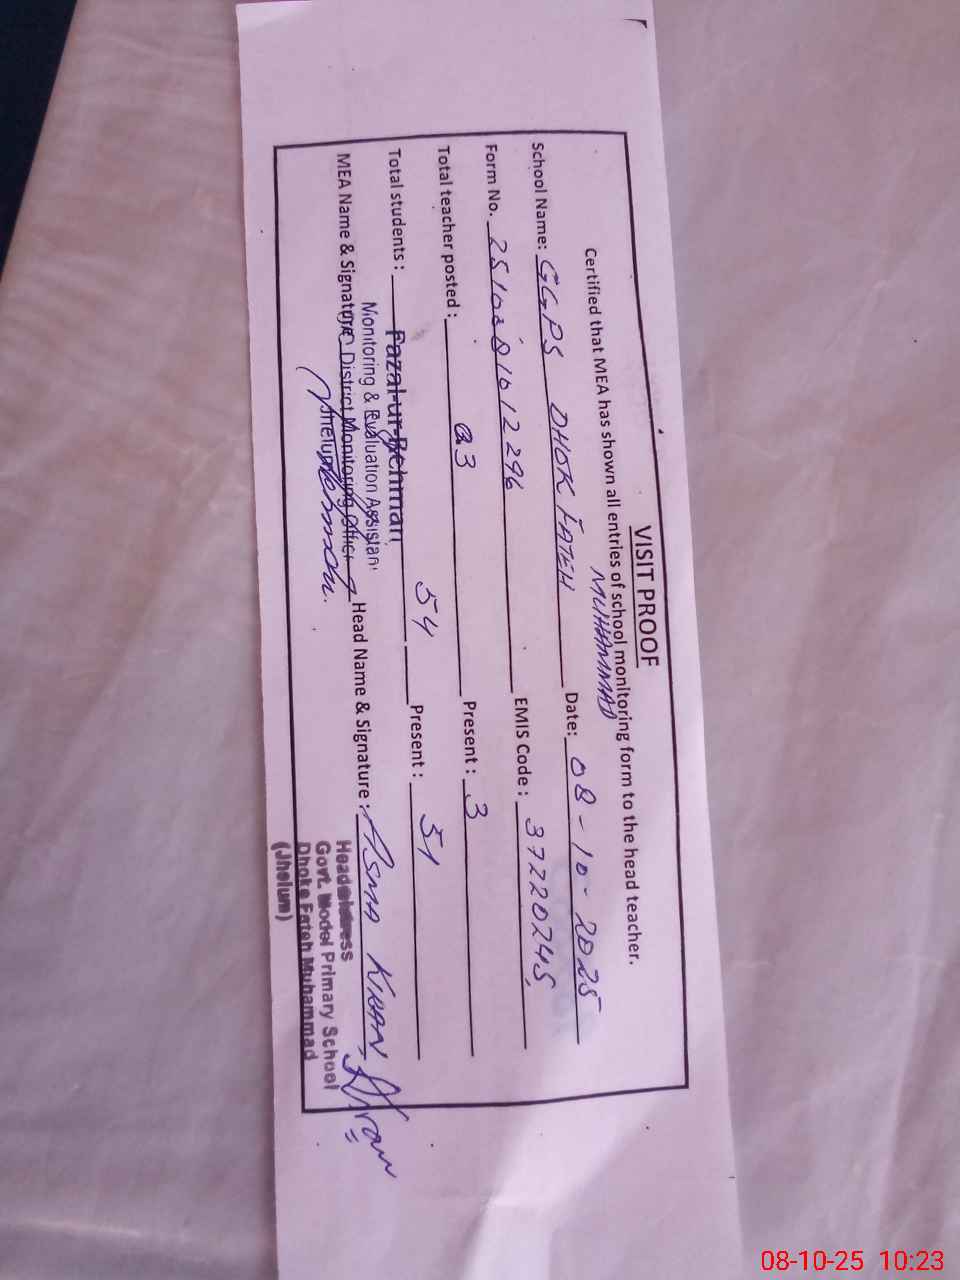 VISIT PROOF
Certified that MEA has shown all entries of school monitoring form to the head teacher.
MUHAMMAD
School Name: GGPS DHOK FATEH Date: 08-10-2025
Form No. EMIS Code: 37220245
Total teacher posted: 03 Present: 3
Total students: 54 Present: 51
Fazal-ur-Rehman
Monitoring & Evaluation Assistant
MEA Name & Signature: Head Name & Signature: ASMA KIRAN, Kiran
District Monitoring Officer
Jhelum
Headmistress
Govt. Model Primary School
Dhoke Fateh Muhammad
(Jhelum)
08-10-25 10:23